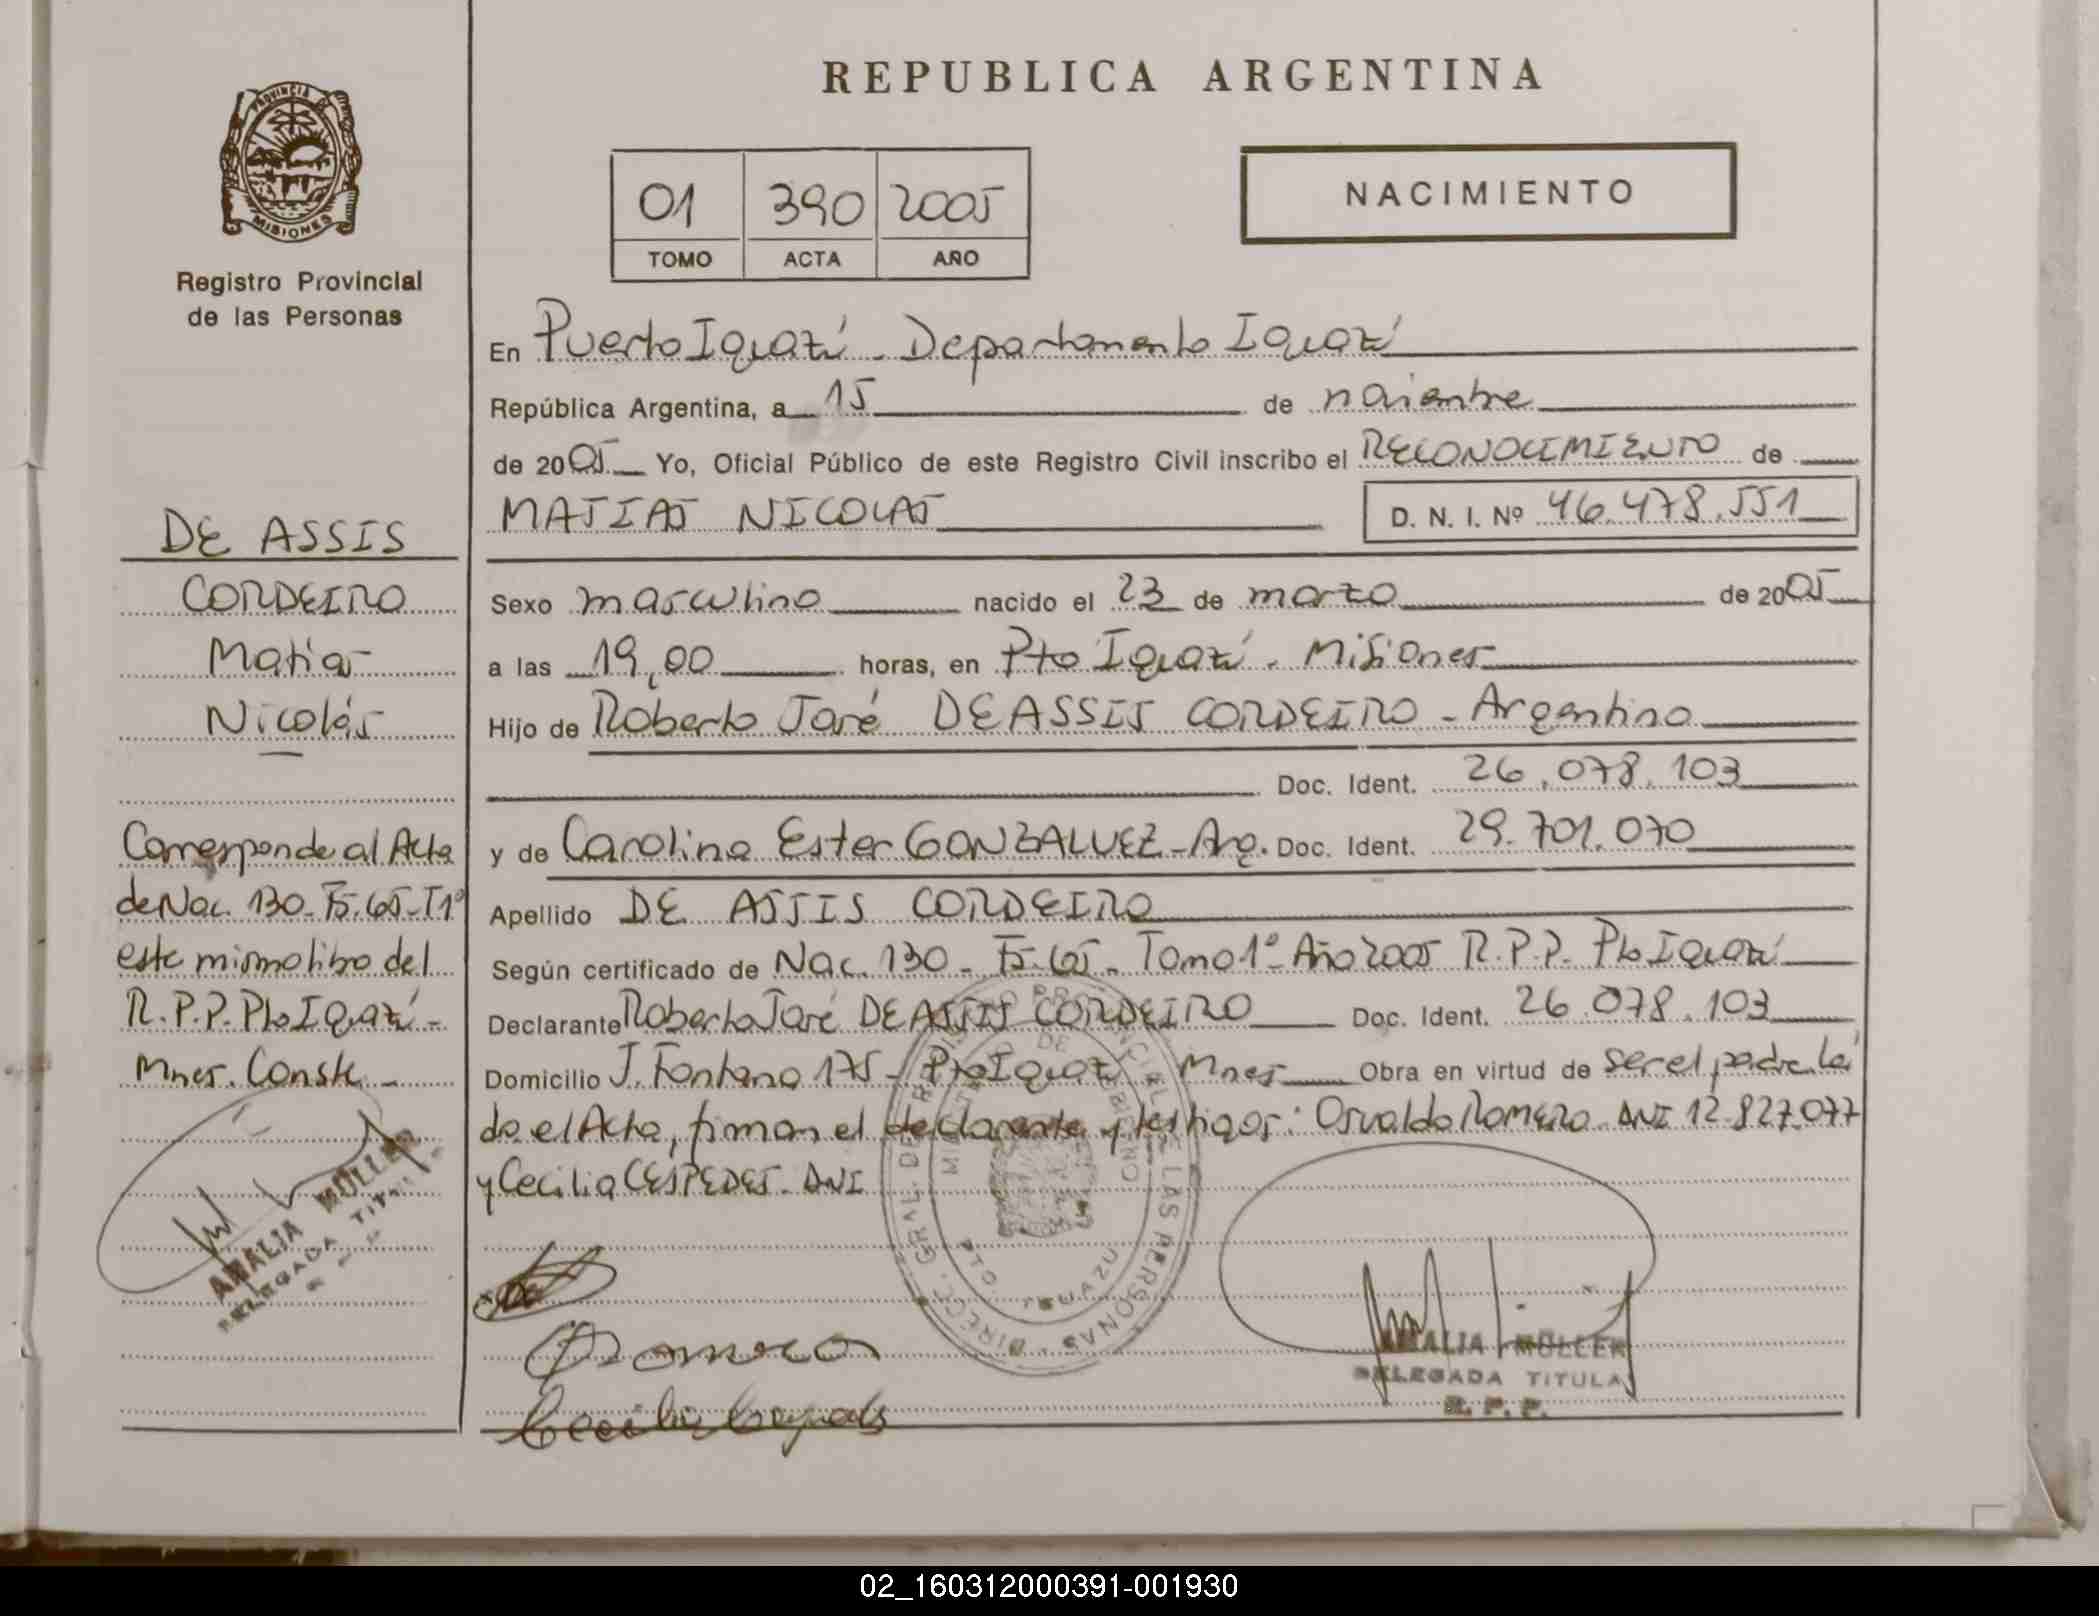 REPUBLICA ARGENTINA
PROVINCIA DE
MISIONES
Registro Provincial
de las Personas
01 390 2005
TOMO ACTA AÑO
NACIMIENTO
En Puerto Iguazú - Departamento Iguazú
República Argentina, a 15 de noviembre
de 2005 Yo, Oficial Público de este Registro Civil inscribo el RECONOCIMIENTO de
MATIAS NICOLAS
D. N. I. Nº 46.478.551
Sexo masculino nacido el 23 de marzo de 2005
a las 19,00 horas, en Pto Iguazú - Misiones
Hijo de Roberto José DE ASSIS CORDEIRO - Argentino
Doc. Ident. 26.078.103
y de Carolina Ester GONZALVEZ - Arg. Doc. Ident. 29.701.070
Apellido DE ASSIS CORDEIRO
Según certificado de Nac. 130 - Fº 65 - Tomo 1º - Año 2005 R.P.P. Pto Iguazú
Declarante Roberto José DE ASSIS CORDEIRO Doc. Ident. 26.078.103
Domicilio J. Fontana 175 - Pto Iguazú Mnes Obra en virtud de ser el padre. Leí
do el Acta, firman el declarante y testigos: Osvaldo ROMERO DNI 12.827.077
y Cecilia CESPEDES. DNI
DE ASSIS
CORDEIRO
Matías
Nicolás
Corresponde al Acta
de Nac. 130 - Fº 65 - T1º
este mismo libro del
R.P.P. Pto Iguazú -
Mnes. Conste -
ANALIA MÜLLER
DELEGADA TIT
DIRECC. GRAL. DEL REGISTRO PROVINCIAL DE LAS PERSONAS
MINISTERIO DE GOBIERNO
PTO. IGUAZU
Romero
Cecilia Cespedes
ANALIA MÜLLER
DELEGADA TITULAR
R. P. P.
02_160312000391-001930